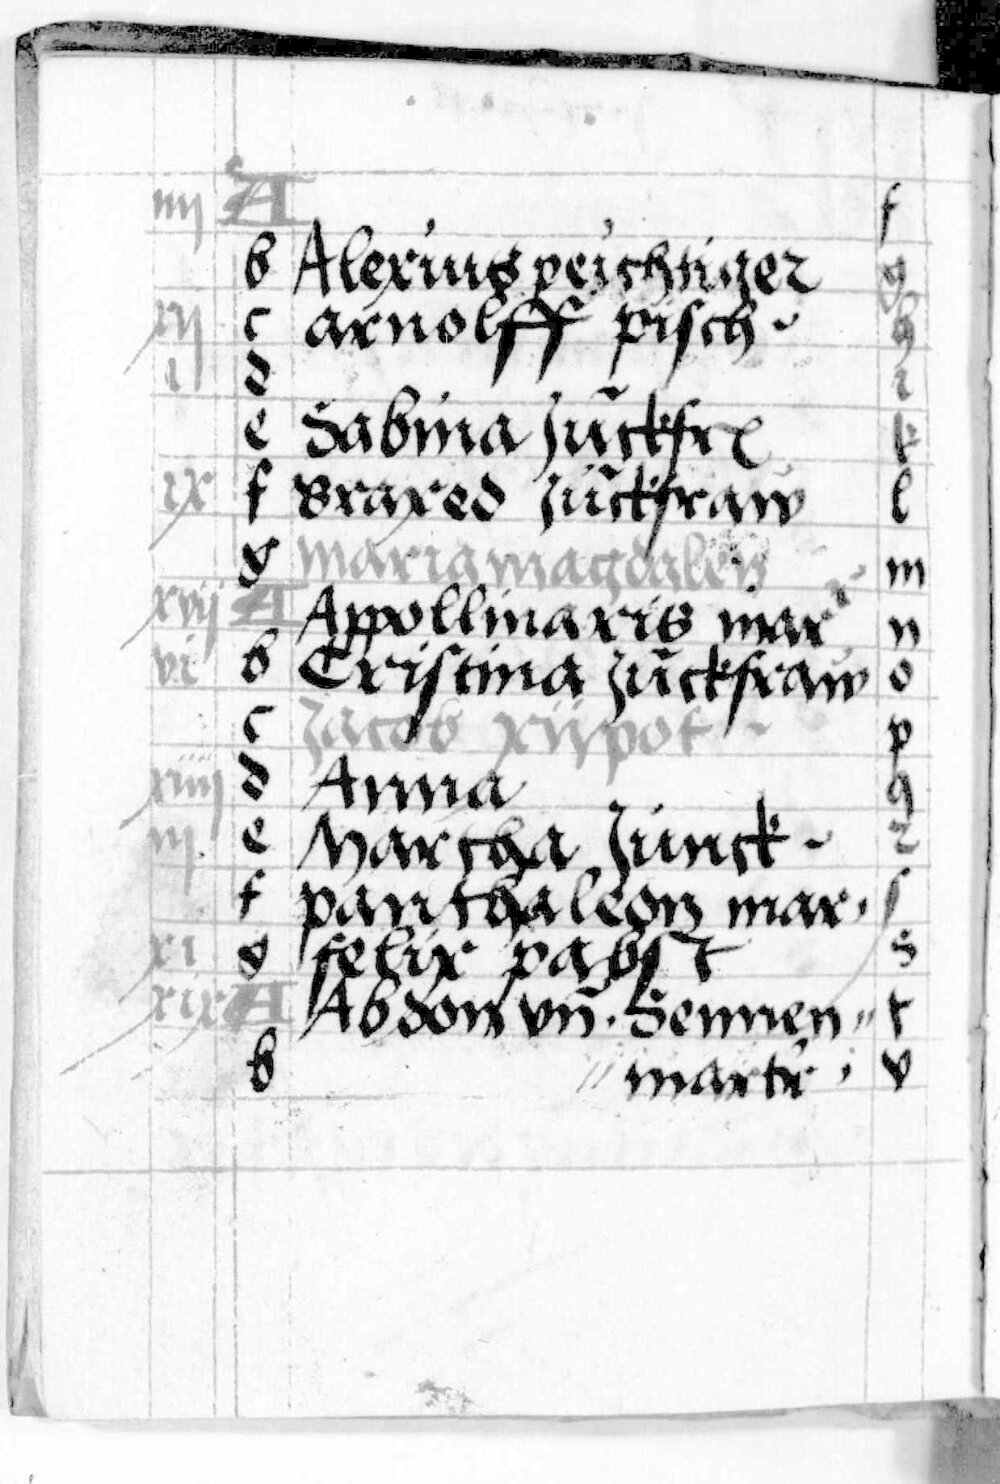 iiij A f
b Alexius peichtiger g
xij c arnolff pisch · h
i d i
e Sabina Jūckfr k
ix f Braxed Jūckfraw l
g maria magdalen m
xvij A Appollinaris mar n
vi b Cristina Jūckfraw o
c Jacob xijpot p
xiiij d Anna q
iij e Martha Junck · r
f panthaleon mar · ſ
xi g felix pabst s
xix A Abdon vn̄ · Sennen t
b martr · v